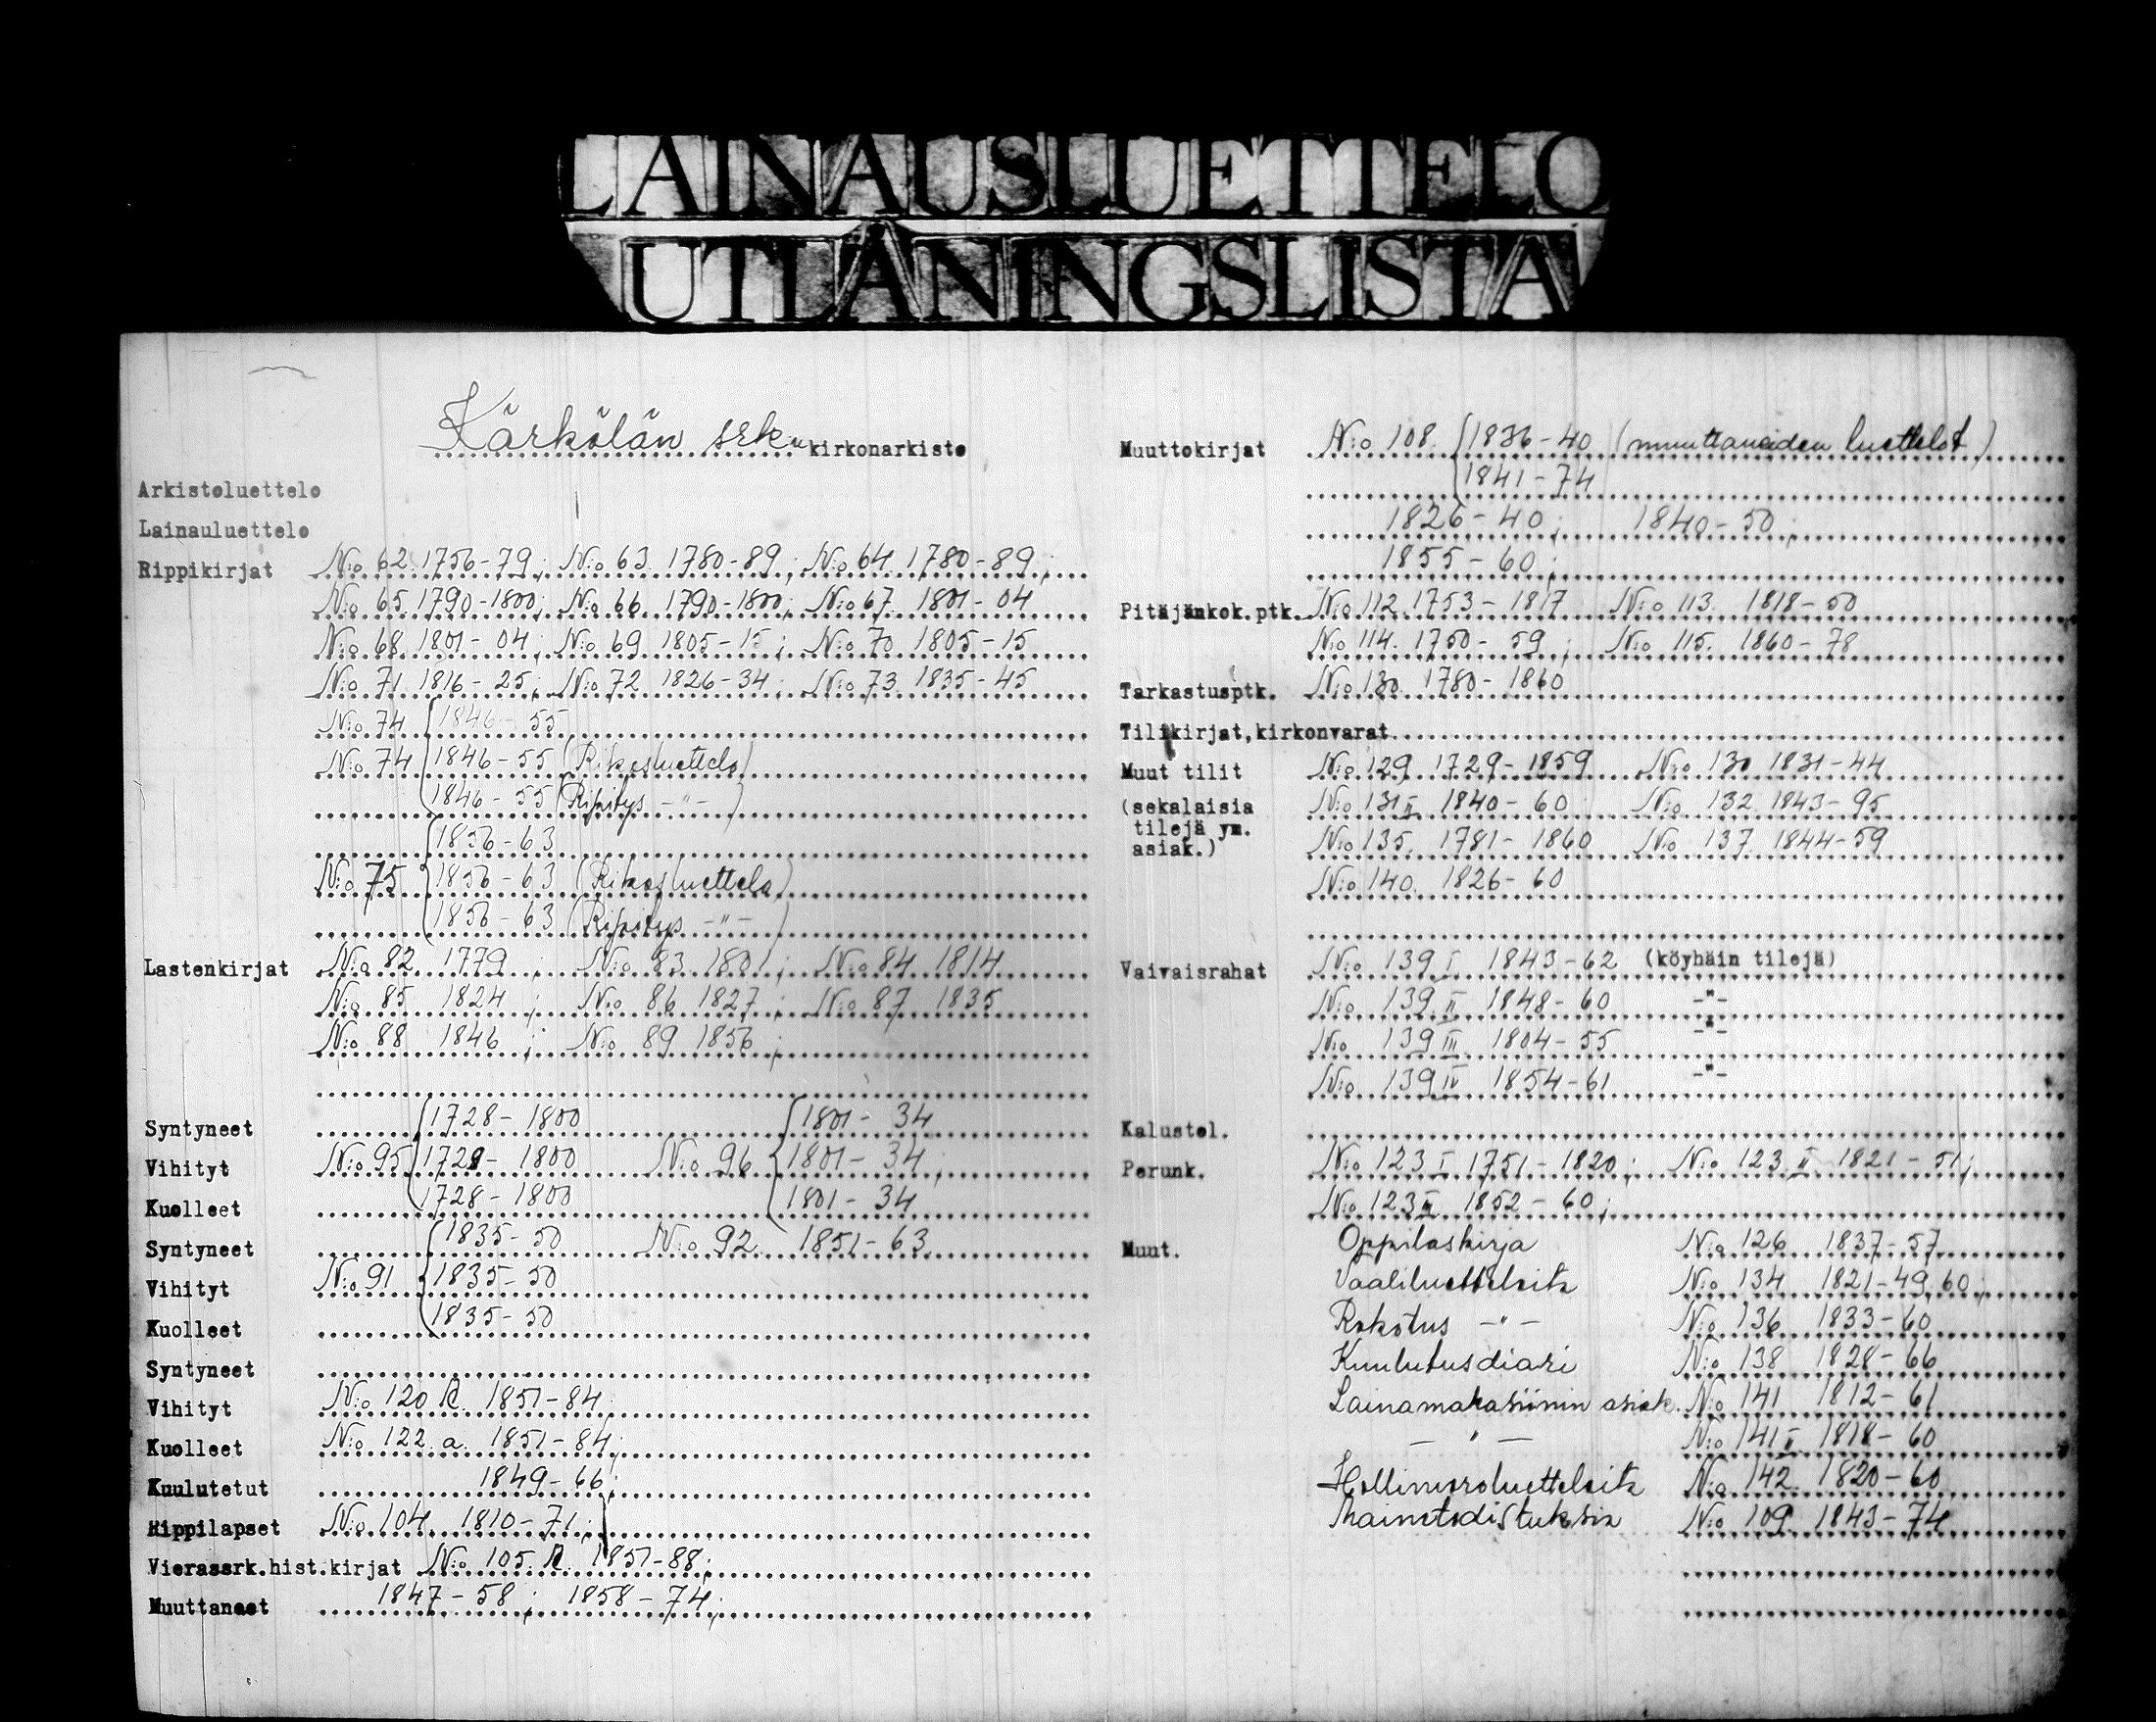 LAINAUSLUETTELO
UTLÅNINGSLISTA
Kärkölän srk:n kirkonarkisto
Arkistoluettelo
Lainauluettelo
Rippikirjat N:o 62. 1756-79; N:o 63. 1780-89; N:o 64. 1780-89;
N:o 65. 1790-1800; N:o 66. 1790-1800; N:o 67. 1801-04
N:o 68. 1801-04; N:o 69 1805-15; N:o 70 1805-15
N:o 71 1816-25; N:o 72 1826-34; N:o 73 1835-45
N:o 74 1846-55
N:o 74 1846-55 (Rikosluettelo)
1846-55 (Ripitys -"-)
1856-63
N:o 75 1856-63 (Rikosluettelo)
1856-63 (Ripitys -"-)
Lastenkirjat N:o 82 1779; N:o 83 1801; N:o 84 1814
N:o 85 1824; N:o 86 1827; N:o 87 1835
N:o 88 1846; N:o 89 1856;
Syntyneet 1728-1800 1801-34
Vihityt N:o 95 1728-1800 N:o 96 1801-34;
Kuolleet 1728-1800 1801-34
Syntyneet 1835-50 N:o 92 1851-63
Vihityt N:o 91 1835-50
Kuolleet 1835-50
Syntyneet
Vihityt N:o 120 R. 1851-84
Kuolleet N:o 122. a. 1851-84;
Kuulutetut 1849-66;
Rippilapset N:o 104. 1810-71;
Vierassrk.hist.kirjat N:o 105. R. 1851-88;
Muuttaneet 1847-58; 1858-74;
Muuttokirjat N:o 108. 1836-40 (muuttaneiden luettelot)
1841-74
1826-40; 1840-50;
1855-60;
Pitäjänkok.ptk. N:o 112. 1753-1817 N:o 113. 1818-50
N:o 114. 1750-59; N:o 115. 1860-78
Tarkastusptk. N:o 130. 1780-1860
Tilikirjat,kirkonvarat
Muut tilit N:o 129 1729-1859 N:o 130 1831-44
(sekalaisia N:o 131 II 1840-60 N:o 132 1843-95
tilejä ym.
asiak.) N:o 135. 1781-1860 N:o 137. 1844-59
N:o 140. 1826-60
Vaivaisrahat N:o 139 I 1843-62 (köyhäin tilejä)
N:o 139 II 1848-60 -"-
N:o 139 III 1804-55 -"-
N:o 139 IV 1854-61 -"-
Kalustol.
Perunk. N:o 123 I 1751-1820; N:o 123 II 1821-51;
N:o 123 III 1852-60;
Muut. Oppilaskirja N:o 126 1837-57
Vaaliluetteloita N:o 134 1821-49, 60;
Rokotus -"- N:o 136 1833-60
Kuulutusdiari N:o 138 1828-66
Lainamakasiinin asiak. N:o 141 1812-61
-"- N:o 141 II 1818-60
Hollimoroluetteloita N:o 142. 1820-60
Mainetodistuksia N:o 109. 1843-74